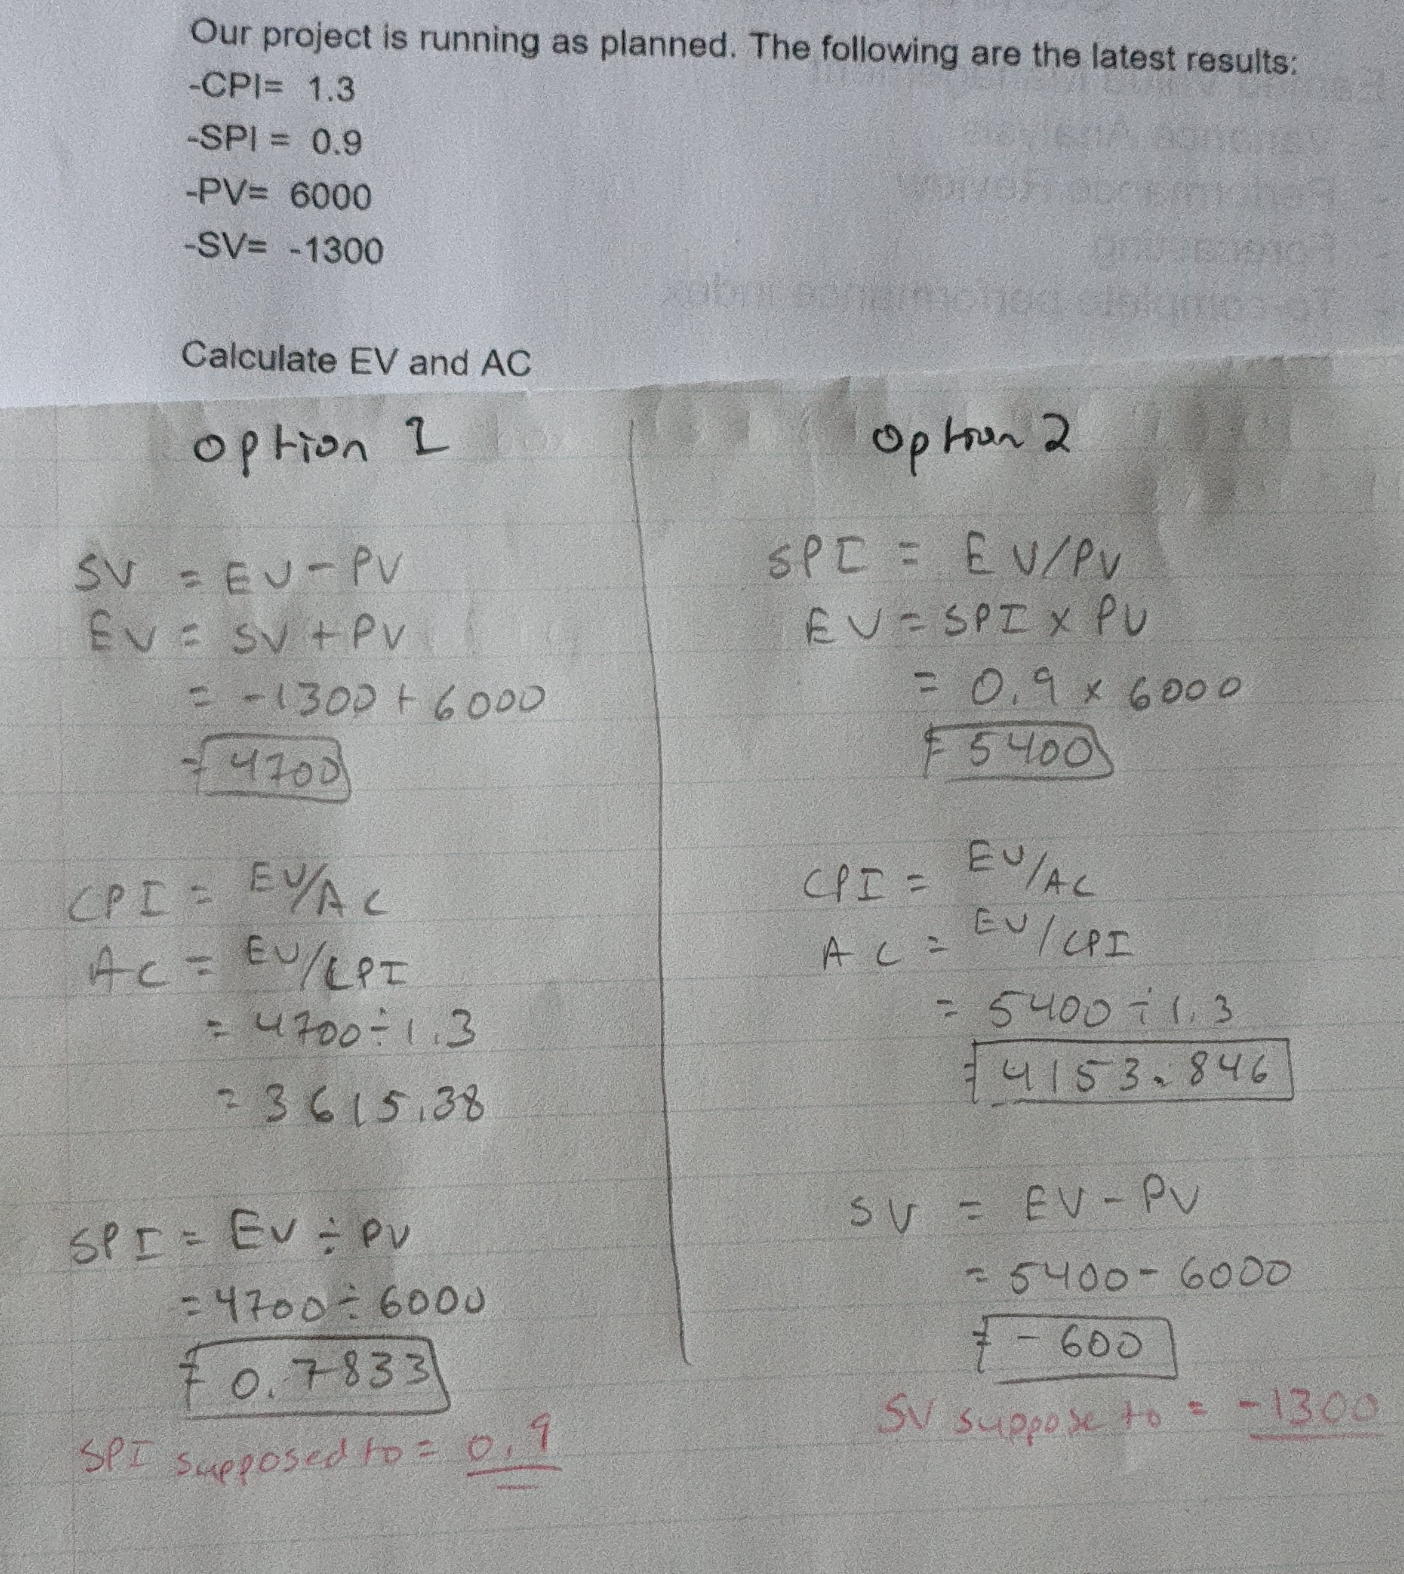 Our project is running as planned. The following are the latest results:
-CPI= 1.3
-SPI = 0.9
-PV= 6000
-SV= -1300
Calculate EV and AC
option 1
SV = EV - PV
EV = SV + PV
= -1300 + 6000
= 4700
CPI = EV/AC
AC = EV/CPI
= 4700 ÷ 1.3
= 3615.38
SPI = EV ÷ PV
= 4700 ÷ 6000
= 0.7833
SPI supposed to = 0.9
option 2
SPI = EV/PV
EV = SPI x PV
= 0.9 x 6000
= 5400
CPI = EV/AC
AC = EV/CPI
= 5400 ÷ 1.3
= 4153.846
SV = EV - PV
= 5400 - 6000
= - 600
SV suppose to = -1300